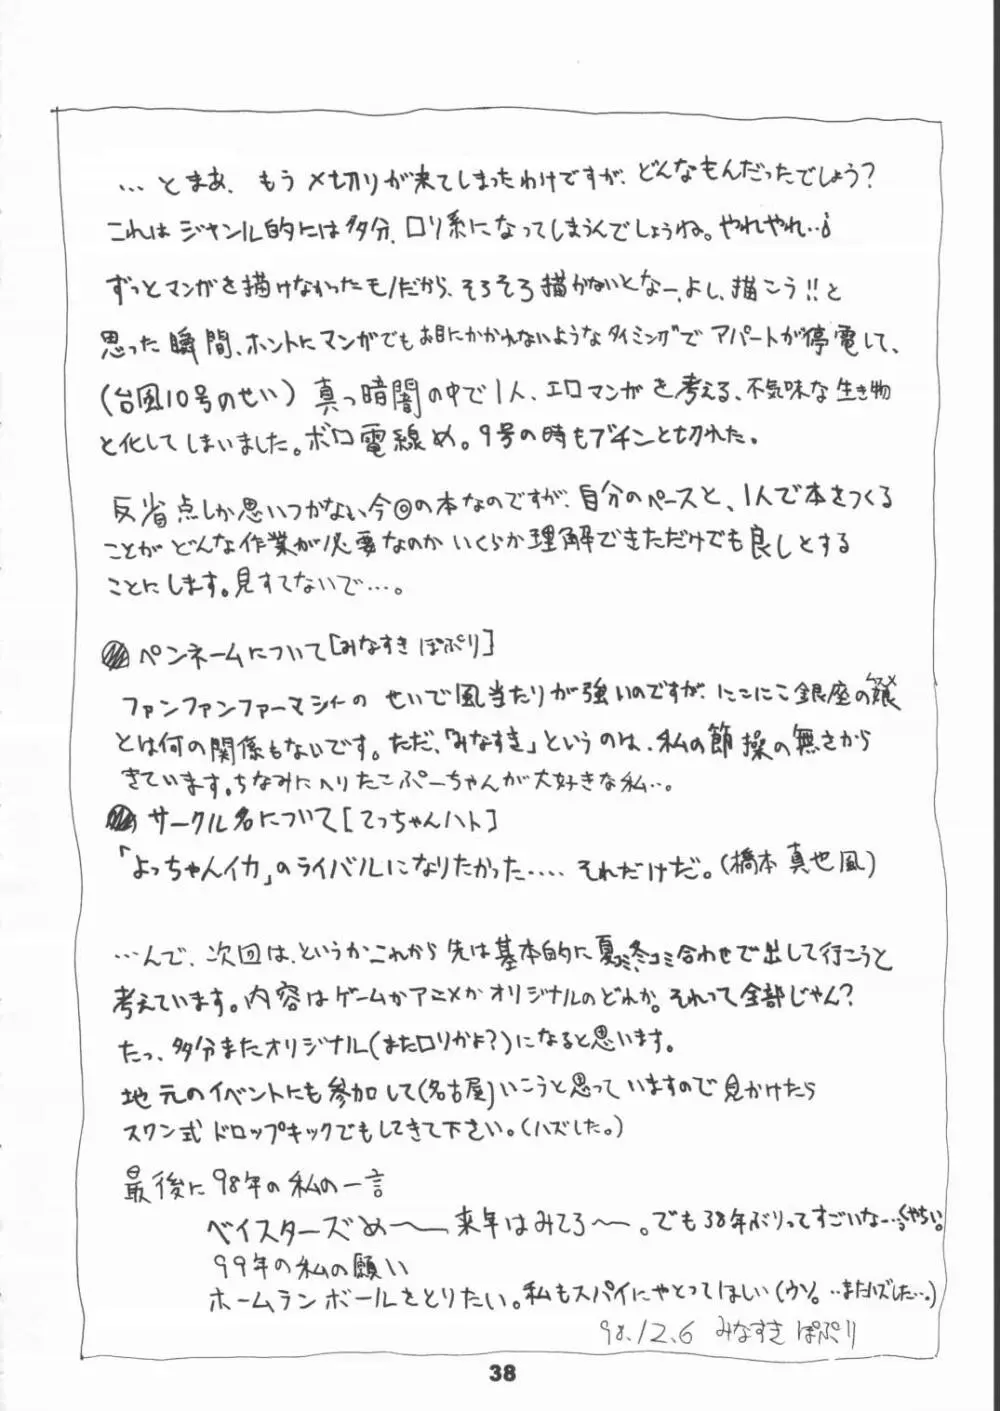 …とまあ、もう〆切りが来てしまったわけですが、どんなもんだったでしょう？
これはジャンル的には多分、ロリ系になってしまうんでしょうね。やれやれ…♪
ずっとマンガを描けなかったモノだから、そろそろ描かないとなー、よし、描こう!!と
思った瞬間、ホントにマンガでもお目にかかれないようなタイミングでアパートが停電して、
（台風10号のせい）真っ暗闇の中で1人、エロマンガを考える、不気味な生き物
と化してしまいました。ボロ電線め。9号の時もブチンと切れた。
反省点しか思いつかない今回の本なのですが、自分のペースと、1人で本をつくる
ことがどんな作業が必要なのかいくらか理解できただけでも良しとする
ことにします。見すてないで…。
ペンネームについて［みなすき ぽぷり］
ファンファンファーマシィーのせいで風当たりが強いのですが、にこにこ銀座の娘
ムスメ
とは何の関係もないです。ただ、「みなすき」というのは、私の節操の無さから
きています。ちなみにへりたこぷーちゃんが大好きな私…。
サークル名について［てっちゃんハト］
「よっちゃんイカ」のライバルになりたかった…‥それだけだ。（橋本真也風）
…んで、次回は、というかこれから先は基本的に夏コミ、冬コミ合わせで出して行こうと
考えています。内容はゲームかアニメかオリジナルのどれか。それって全部じゃん？
たっ、多分またオリジナル（またロリかよ？）になると思います。
地元のイベントにも参加して（名古屋）いこうと思っていますので見かけたら
スワン式ドロップキックでもしてきて下さい。（ハズした。）
最後に98年の私の一言
ベイスターズめ〜来年はみてろ〜。でも38年ぶりってすごいなー…くやちい。
99年の私の願い
ホームランボールをとりたい。私もスパイにやとってほしい（ウソ。…またハズした…。）
98.12.6 みなすき ぽぷり
38